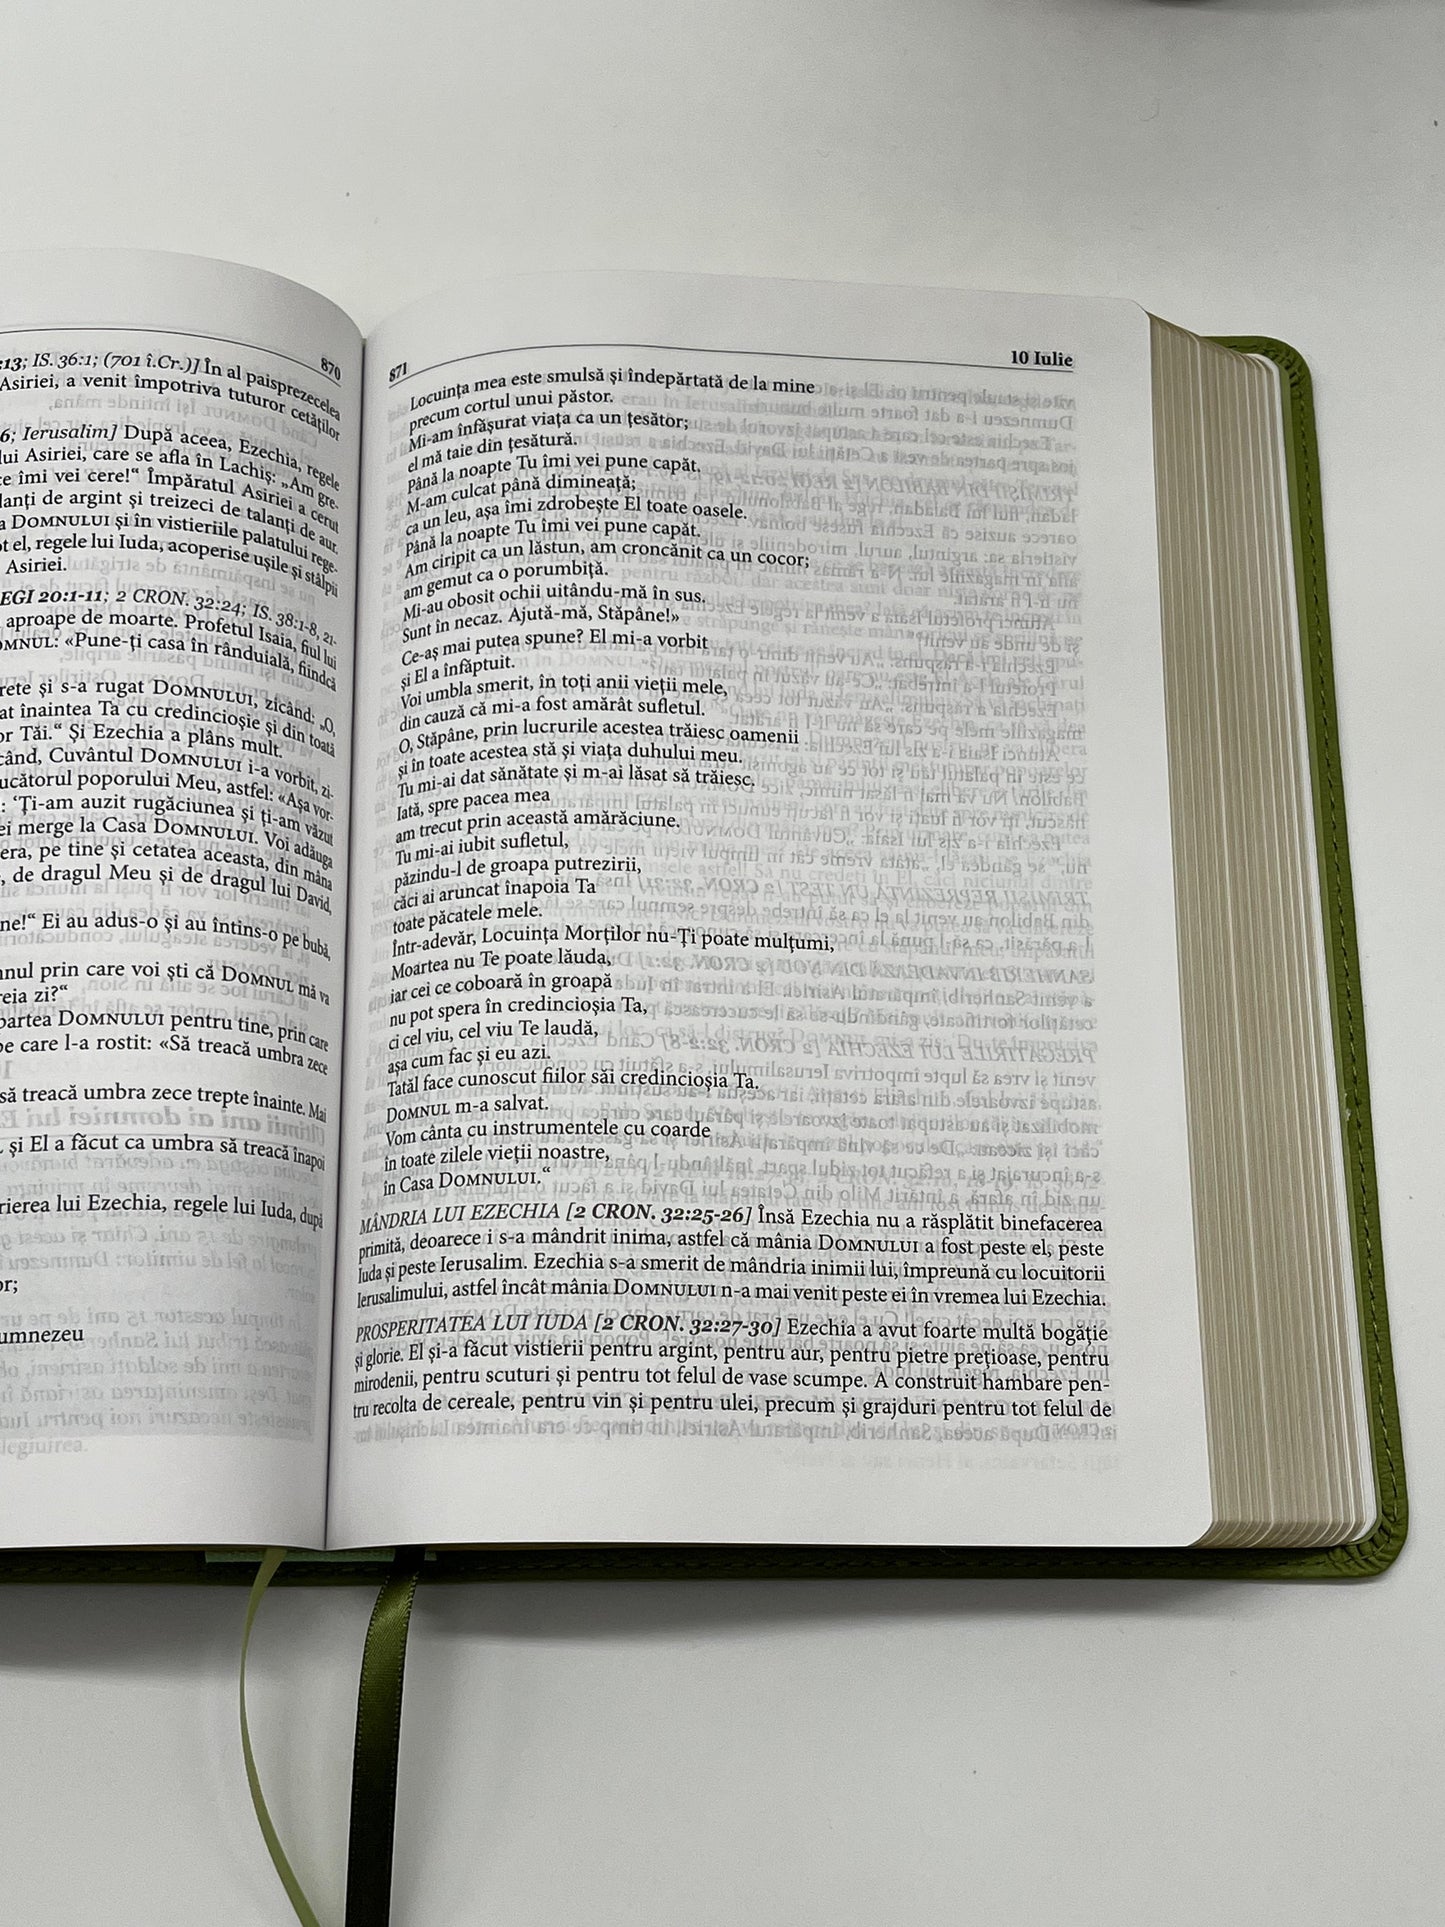 870
:13; IS. 36:1; (701 î.Cr.)] În al paisprezecelea
Asiriei, a venit împotriva tuturor cetăților
6; Ierusalim] După aceea, Ezechia, regele
lui Asiriei, care se afla în Lachiș: „Am gre-
e îmi vei cere!“ Împăratul Asiriei a cerut
lanți de argint și treizeci de talanți de aur.
a DOMNULUI și în vistieriile palatului rege-
ot el, regele lui Iuda, acoperise ușile și stâlpii
Asiriei.
EGI 20:1-11; 2 CRON. 32:24; IS. 38:1-8, 21-
aproape de moarte. Profetul Isaia, fiul lui
OMNUL: «Pune-ți casa în rânduială, fiindcă
rete și s-a rugat DOMNULUI, zicând: „O,
at înaintea Ta cu credincioșie și din toată
or Tăi.“ Și Ezechia a plâns mult.
când, Cuvântul DOMNULUI i-a vorbit, zi-
ucătorul poporului Meu, astfel: «Așa vor-
: ‘Ți-am auzit rugăciunea și ți-am văzut
ei merge la Casa DOMNULUI. Voi adăuga
era, pe tine și cetatea aceasta, din mâna
, de dragul Meu și de dragul lui David,
ne!“ Ei au adus-o și au întins-o pe bubă,
nnul prin care voi ști că DOMNUL mă va
reia zi?“
partea DOMNULUI pentru tine, prin care
pe care l-a rostit: «Să treacă umbra zece
să treacă umbra zece trepte înainte. Mai
, și El a făcut ca umbra să treacă înapoi
rierea lui Ezechia, regele lui Iuda, după
or;
umnezeu
871 10 Iulie
Locuința mea este smulsă și îndepărtată de la mine
precum cortul unui păstor.
Mi-am înfășurat viața ca un țesător;
el mă taie din țesătură.
Până la noapte Tu îmi vei pune capăt.
M-am culcat până dimineață;
ca un leu, așa îmi zdrobește El toate oasele.
Până la noapte Tu îmi vei pune capăt.
Am ciripit ca un lăstun, am croncănit ca un cocor;
am gemut ca o porumbiță.
Mi-au obosit ochii uitându-mă în sus.
Sunt în necaz. Ajută-mă, Stăpâne!»
Ce-aș mai putea spune? El mi-a vorbit
și El a înfăptuit.
Voi umbla smerit, în toți anii vieții mele,
din cauză că mi-a fost amărât sufletul.
O, Stăpâne, prin lucrurile acestea trăiesc oamenii
și în toate acestea stă și viața duhului meu.
Tu mi-ai dat sănătate și m-ai lăsat să trăiesc.
Iată, spre pacea mea
am trecut prin această amărăciune.
Tu mi-ai iubit sufletul,
păzindu-l de groapa putrezirii,
căci ai aruncat înapoia Ta
toate păcatele mele.
Într-adevăr, Locuința Morților nu-Ți poate mulțumi,
Moartea nu Te poate lăuda,
iar cei ce coboară în groapă
nu pot spera în credincioșia Ta,
ci cel viu, cel viu Te laudă,
așa cum fac și eu azi.
Tatăl face cunoscut fiilor săi credincioșia Ta.
DOMNUL m-a salvat.
Vom cânta cu instrumentele cu coarde
în toate zilele vieții noastre,
în Casa DOMNULUI.“
MÂNDRIA LUI EZECHIA [2 CRON. 32:25-26] Însă Ezechia nu a răsplătit binefacerea
primită, deoarece i s-a mândrit inima, astfel că mânia DOMNULUI a fost peste el, peste
Iuda și peste Ierusalim. Ezechia s-a smerit de mândria inimii lui, împreună cu locuitorii
Ierusalimului, astfel încât mânia DOMNULUI n-a mai venit peste ei în vremea lui Ezechia.
PROSPERITATEA LUI IUDA [2 CRON. 32:27-30] Ezechia a avut foarte multă bogăție
și glorie. El și-a făcut vistierii pentru argint, pentru aur, pentru pietre prețioase, pentru
mirodenii, pentru scuturi și pentru tot felul de vase scumpe. A construit hambare pen-
tru recolta de cereale, pentru vin și pentru ulei, precum și grajduri pentru tot felul de